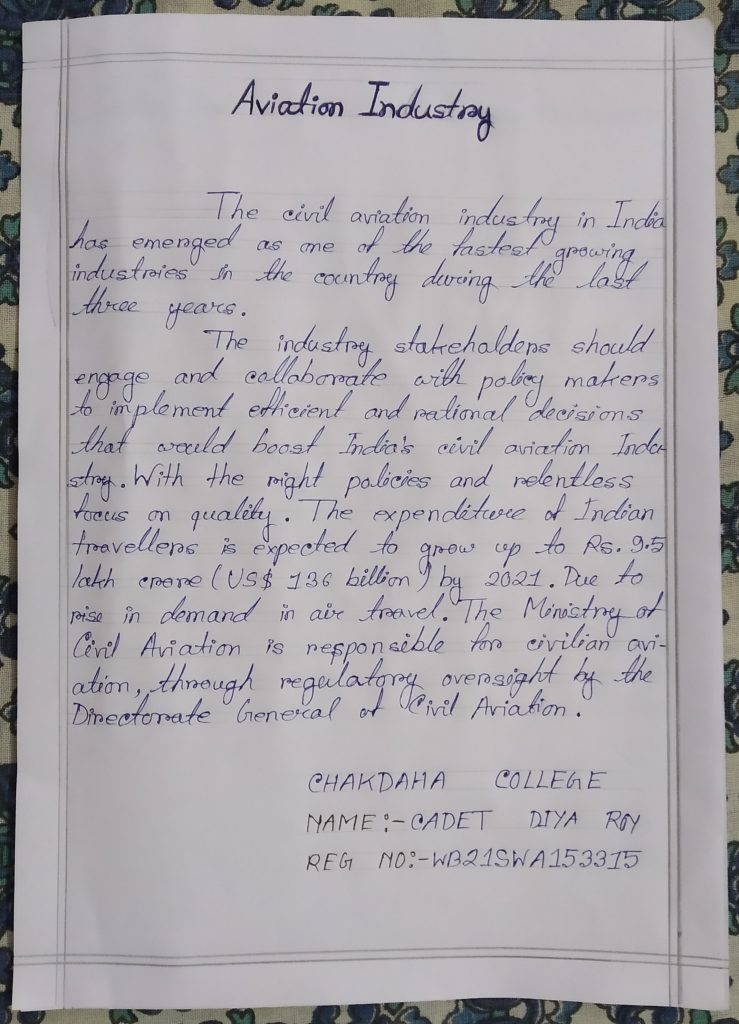 Aviation Industry
The civil aviation industry in India
has emerged as one of the fastest growing
industries in the country during the last
three years.
The industry stakeholders should
engage and collaborate with policy makers
to implement efficient and rational decisions
that would boost India's civil aviation Indu-
stry. With the right policies and relentless
focus on quality. The expenditure of Indian
travellers is expected to grow up to Rs. 9.5
lakh crore (US$ 136 billion) by 2021. Due to
rise in demand in air travel. The Ministry of
Civil Aviation is responsible for civilian avi-
ation, through regulatory oversight by the
Directorate General of Civil Aviation.
CHAKDAHA COLLEGE
NAME :- CADET DIYA ROY
REG NO:- WB21SWA153315